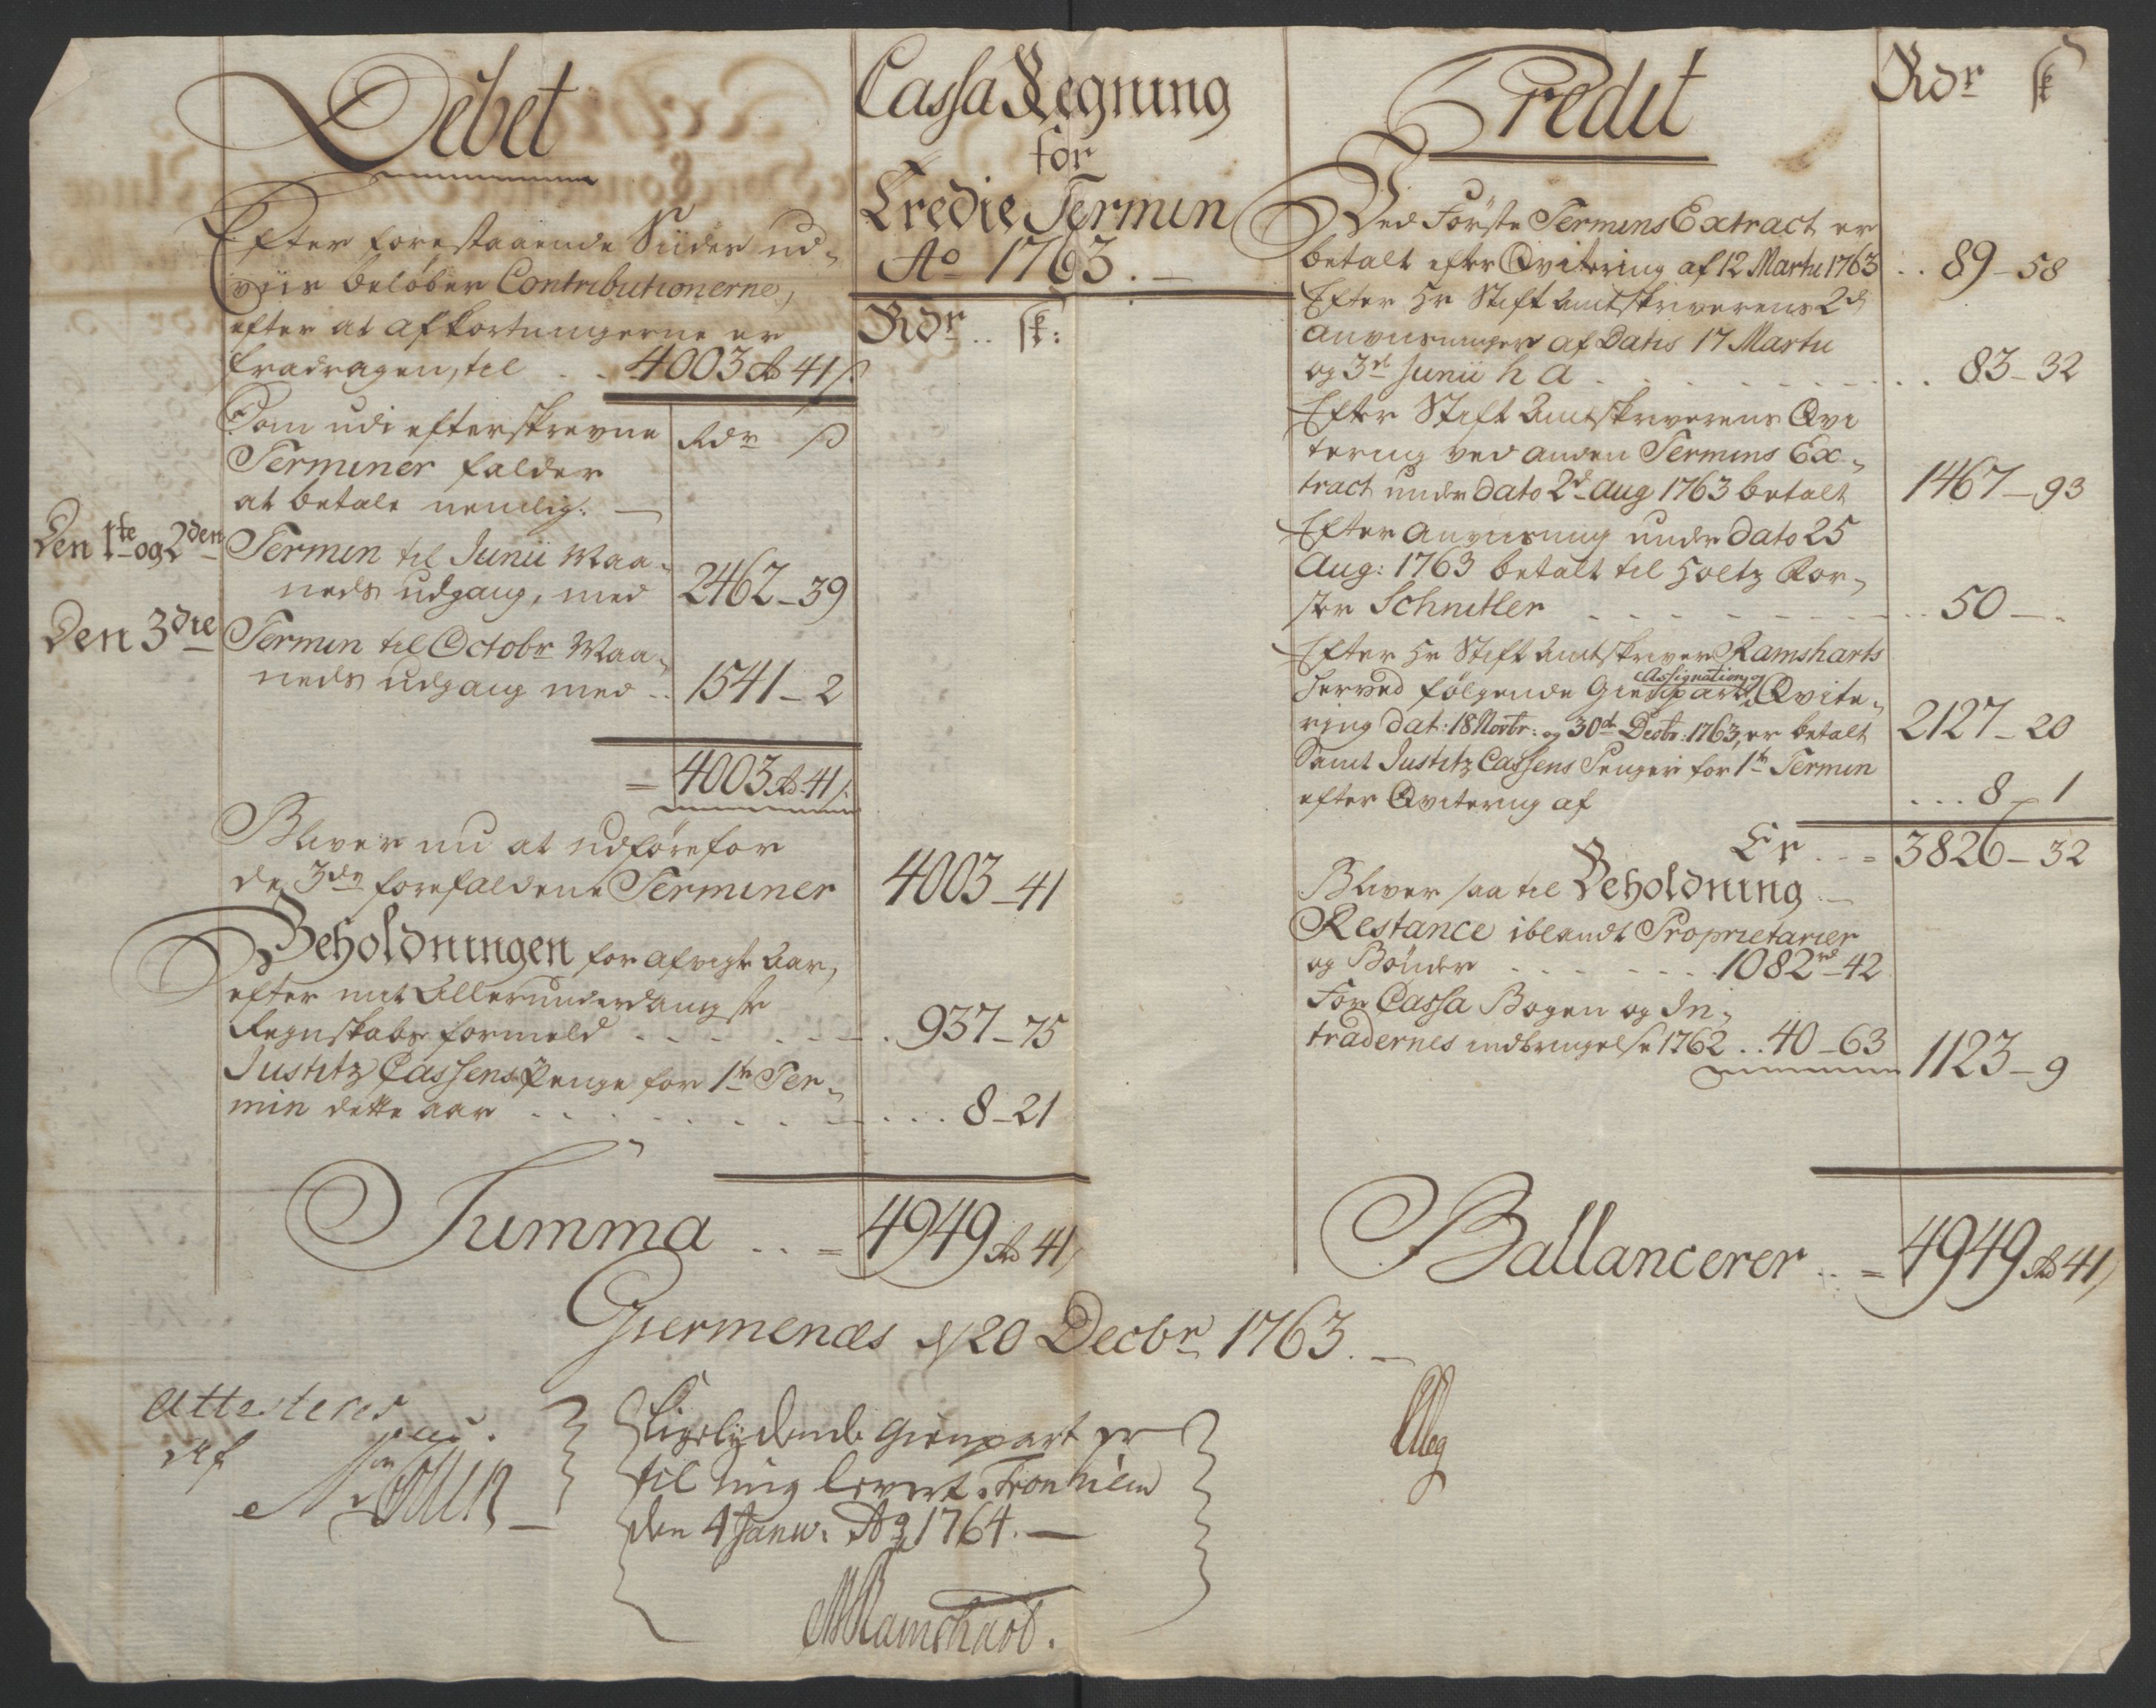 Debet
Efter forestaaende Siider ud-
viis beløber Contributionerne,
efter at afkortningerne er
fradragen, til . . 4003 rd 41 s.
Som udi efterskrevne Rdr s
Terminer falder
at betale nemlig: —
Den 1te og 2den Termin til Junii Maa-
neds udgang, med 2462 – 39
Den 3die Termin til Octobr Maa-
neds udgang med .. 1541 – 2
= 4003 rd 41 s.
Bliver nu at udføre for
de 3de forefaldene Terminer 4003 – 41
Beholdningen for afvigte Aar,
efter mit Allerunderdanigste
Regnskabs formeld . . . . . . 937 – 75
Justitz Cassens Penge for 1te Ter-
min dette aar . . . . . . . . 8 – 21
Summa . . = 4949 rd 41 s
Cassa Regning
for
Tredie Termin
Ao 1763. —
Rdr .. sk:
Credit Rdr sk
Ved Förste Termins Extract er
betalt efter Qvitering af 12 Martii 1763 . . 89 – 58
Efter Hr Stiftamtskriverens 2de
Anviisninger af Datis 17 Martii
og 3de Junii h a . . . . . . . . . 83 – 32
Efter Stiftamtskriverens Qvi
tering ved anden Termins Ex-
tract under dato 2de Aug 1763 betalt 1467 – 93
Efter Anviisning under dato 25
Aug: 1763 betalt til Holtz För-
ster Schnitler . . . . . . . . . 50 – -
Efter Hr Stiftamtskriver Ramsharts
herved følgende Gienpart Assignation og Qvite-
ring dat: 18 Novbr: og 30de Decbr: 1763, er betalt 2127 – 20
Samt Justitz Cassens Penger for 1te Termin
efter Qvitering af . . . 8 – 1
Er . . = 3826 – 32
Bliver saa til Beholdning —
Restance iblandt Proprietarier
og Bönder . . . . . . . 1082 rd – 42
For Cassa Bogen og In-
tradernes indbringelse 1762 . . 40 – 63 1123 – 9
Ballancerer . . = 4949 rd 41 s
Giermenæs d 20 Decbr 1763. —
Attesteres
af
Ligelydende Gienpart er
til mig levert. Tronhiem
den 4 Janu: Ao 1764. —
MRamshart.